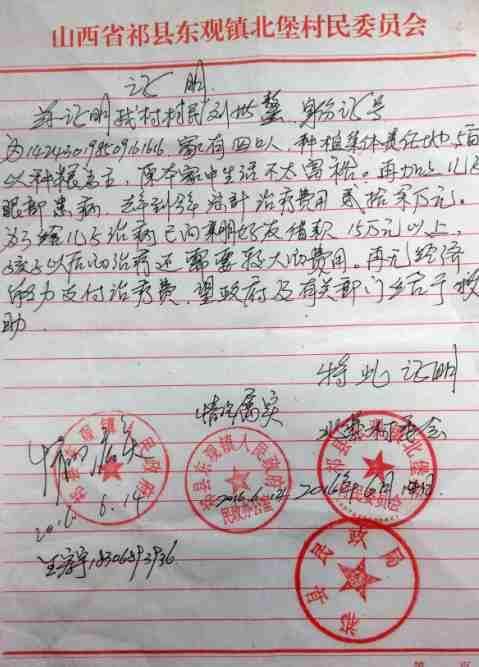 山西省祁县东观镇北堡村民委员会
证明
兹证明我村村民刘 身份证号
为 家有四口人，种植集体责任地5亩
以种粮为主，原本家中生活不太富裕。再加上儿子
眼部患病，去年到 治疗费用贰拾 万元。
为了给儿子治病已向亲朋好友借款15万元以上，
孩子以后的治疗还需要较大的费用。再无经济
能力支付治疗费，望政府及有关部门给予救
助
特此证明
情况属实
北堡村委会
情况属实
祁县东观镇人民政府
祁县东观镇人民政府
民政办公室
村民委员会
2016.6.14
2016年6月
18306893936
祁县民政局